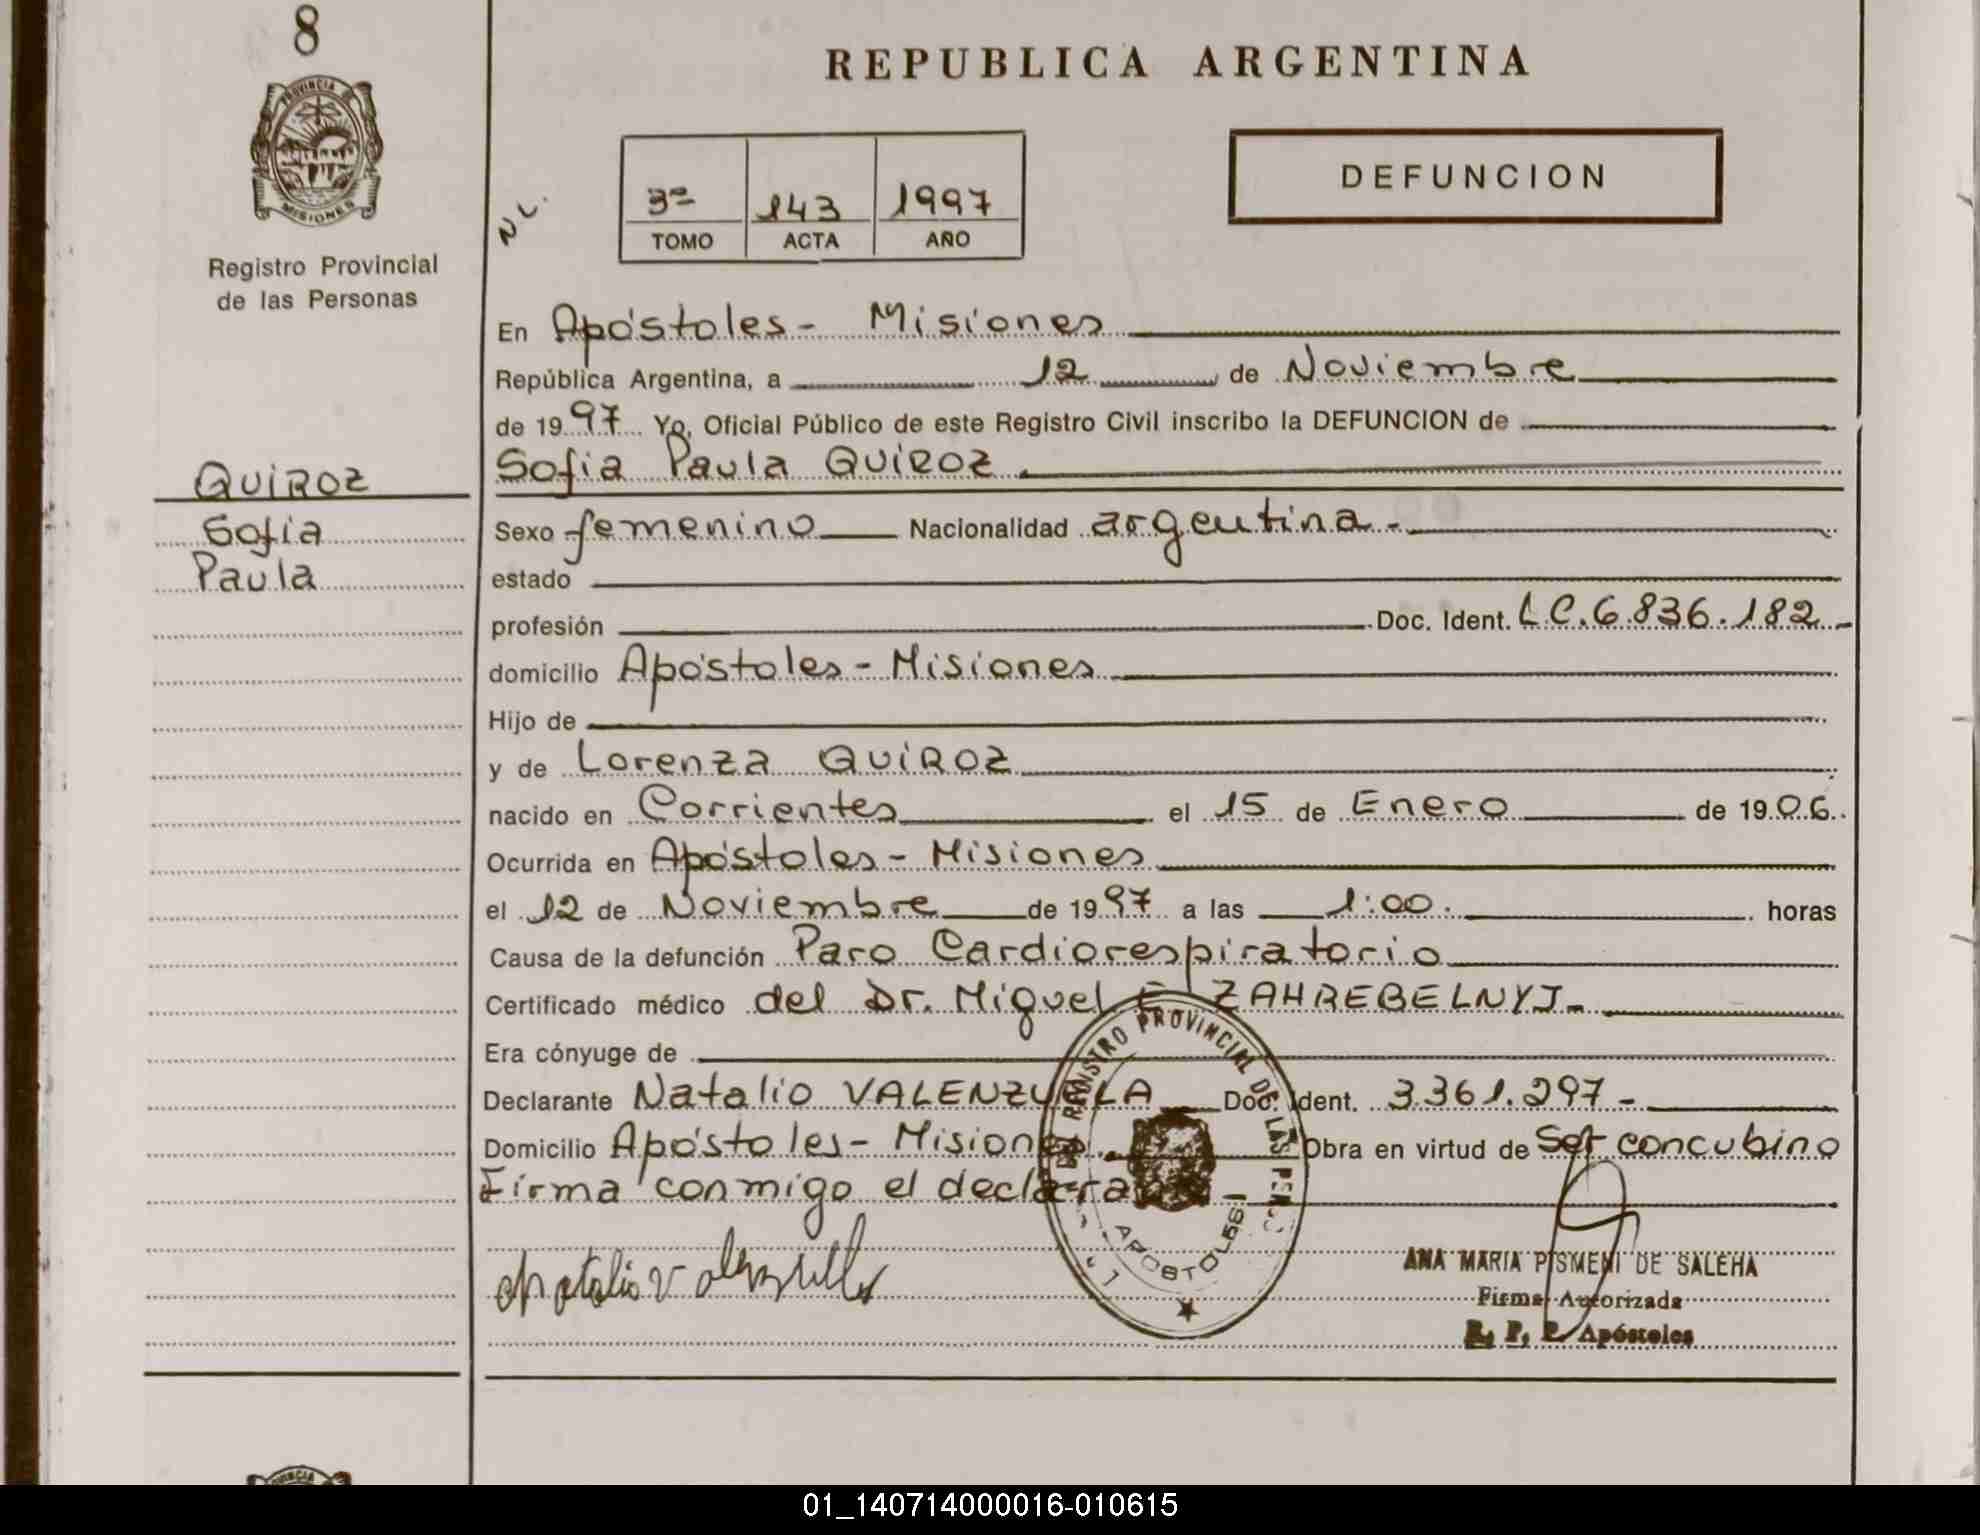 8
PROVINCIA DE
MISIONES
Registro Provincial
de las Personas
QUIROZ
Sofia
Paula
REPUBLICA ARGENTINA
N.L.
3º 143 1997
TOMO ACTA AÑO
DEFUNCION
En Apóstoles - Misiones
República Argentina, a 12 de Noviembre
de 1997 Yo, Oficial Público de este Registro Civil inscribo la DEFUNCION de
Sofia Paula QUIROZ.
Sexo femenino Nacionalidad argentina -
estado
profesión Doc. Ident. L.C. 6.836.182 -
domicilio Apóstoles - Misiones
Hijo de
y de Lorenza QUIROZ
nacido en Corrientes el 15 de Enero de 1906.
Ocurrida en Apóstoles - Misiones
el 12 de Noviembre de 1997 a las 1:00. horas
Causa de la defunción Paro Cardiorespiratorio
Certificado médico del Dr. Miguel E. ZAHREBELNYJ -
Era cónyuge de
Declarante Natalio VALENZUELA Doc. Ident. 3.361.297 -
Domicilio Apóstoles - Misiones. Obra en virtud de Ser concubino
Firma conmigo el declara
Natalio Valenzuela
REGISTRO PROVINCIAL DE LAS PERS
APOSTOLES
ANA MARIA PISMENI DE SALEHA
Firma Autorizada
R. P. P. Apóstoles
01_140714000016-010615